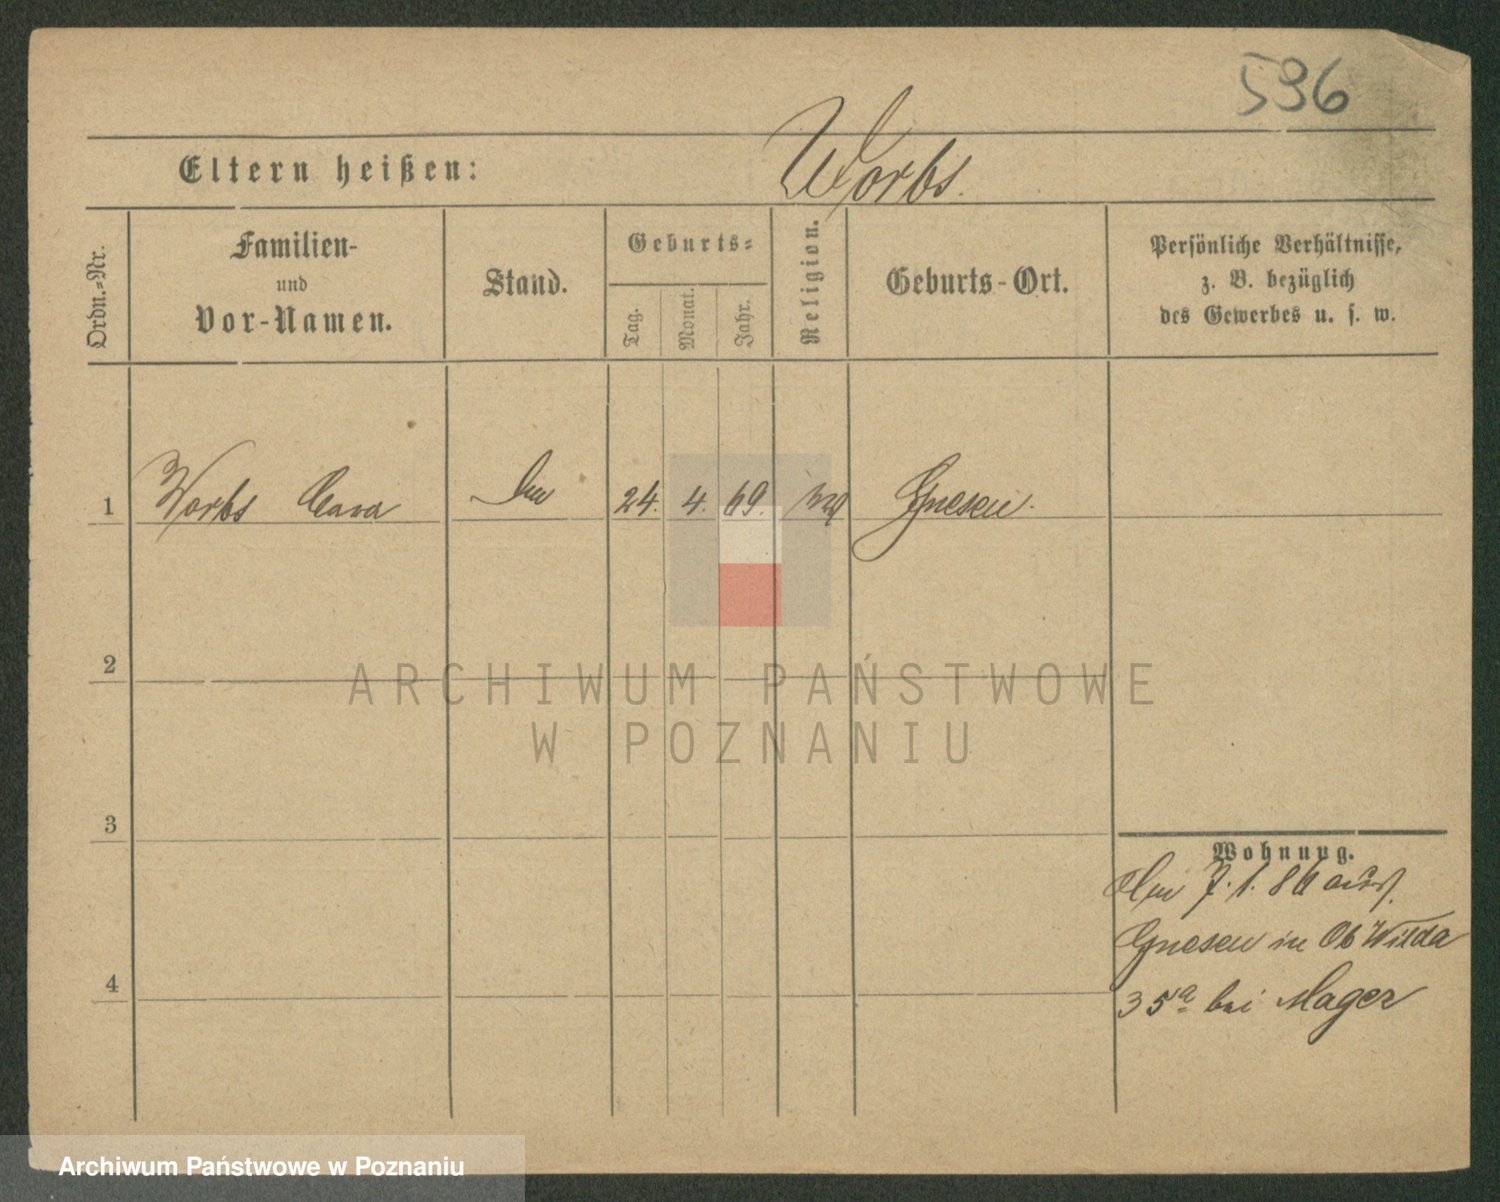 596
Eltern heißen: Worbs.
Ordn.-Nr.
Familien-
und
Vor-Namen.
Stand.
Geburts-
Tag.
Monat.
Jahr.
Religion.
Geburts-Ort.
Persönliche Verhältnisse,
z. B. bezüglich
des Gewerbes u. s. w.
1 Worbs 24. 4. 69. Gnesen.
2
3
4
Wohnung.
Am 7. 1. 86 aus
Gnesen in Ob Wilda
35a bei Mager
ARCHIWUM PAŃSTWOWE
W POZNANIU
Archiwum Państwowe w Poznaniu